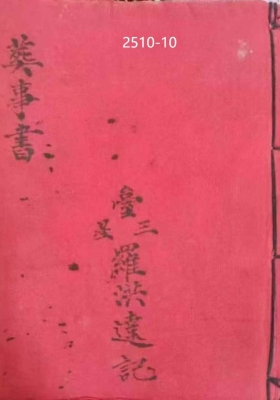 2510-10
三臺星羅洪達記
葬事書